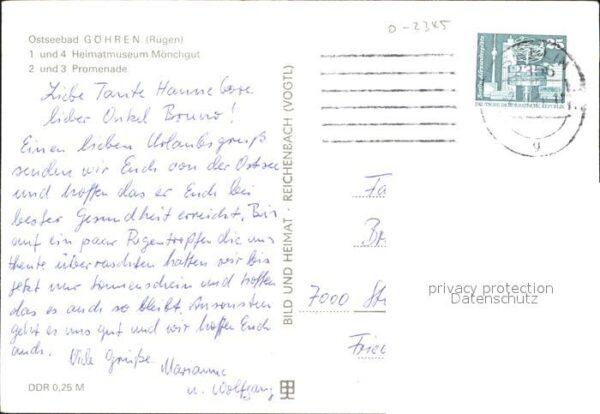 Ostseebad GÖHREN (Rügen)
1 und 4 Heimatmuseum Mönchgut
2 und 3 Promenade
Liebe Tante Hannelore
lieber Onkel Bruno!
Einen lieben Urlaubsgruß
senden wir Euch von der Ostsee
und hoffen das er Euch bei
bester Gesundheit erreicht. Bis
auf ein paar Regentropfen die uns
heute überraschten hatten wir bis
jetzt nur Sonnenschein und hoffen
das es auch so bleibt. Ansonsten
geht es uns gut und wir hoffen Euch
auch. Viele Grüße
Marianne
u. Wolfgang
DDR 0,25 M
BILD UND HEIMAT · REICHENBACH (VOGTL)
0-2345
25
7000
privacy protection
Datenschutz